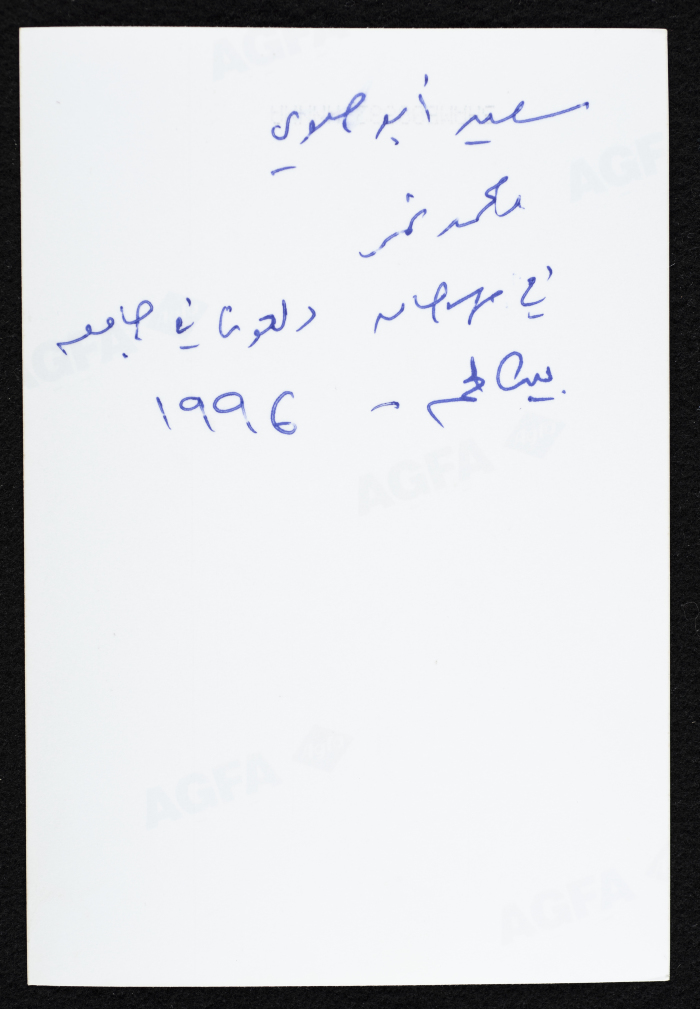 سعيد أبو صلوي
محمد نمر
في مهرجان دلعونا في جامعة
بيت لحم - 1996
AGFA
AGFA
AGFA
AGFA
AGFA
AGFA